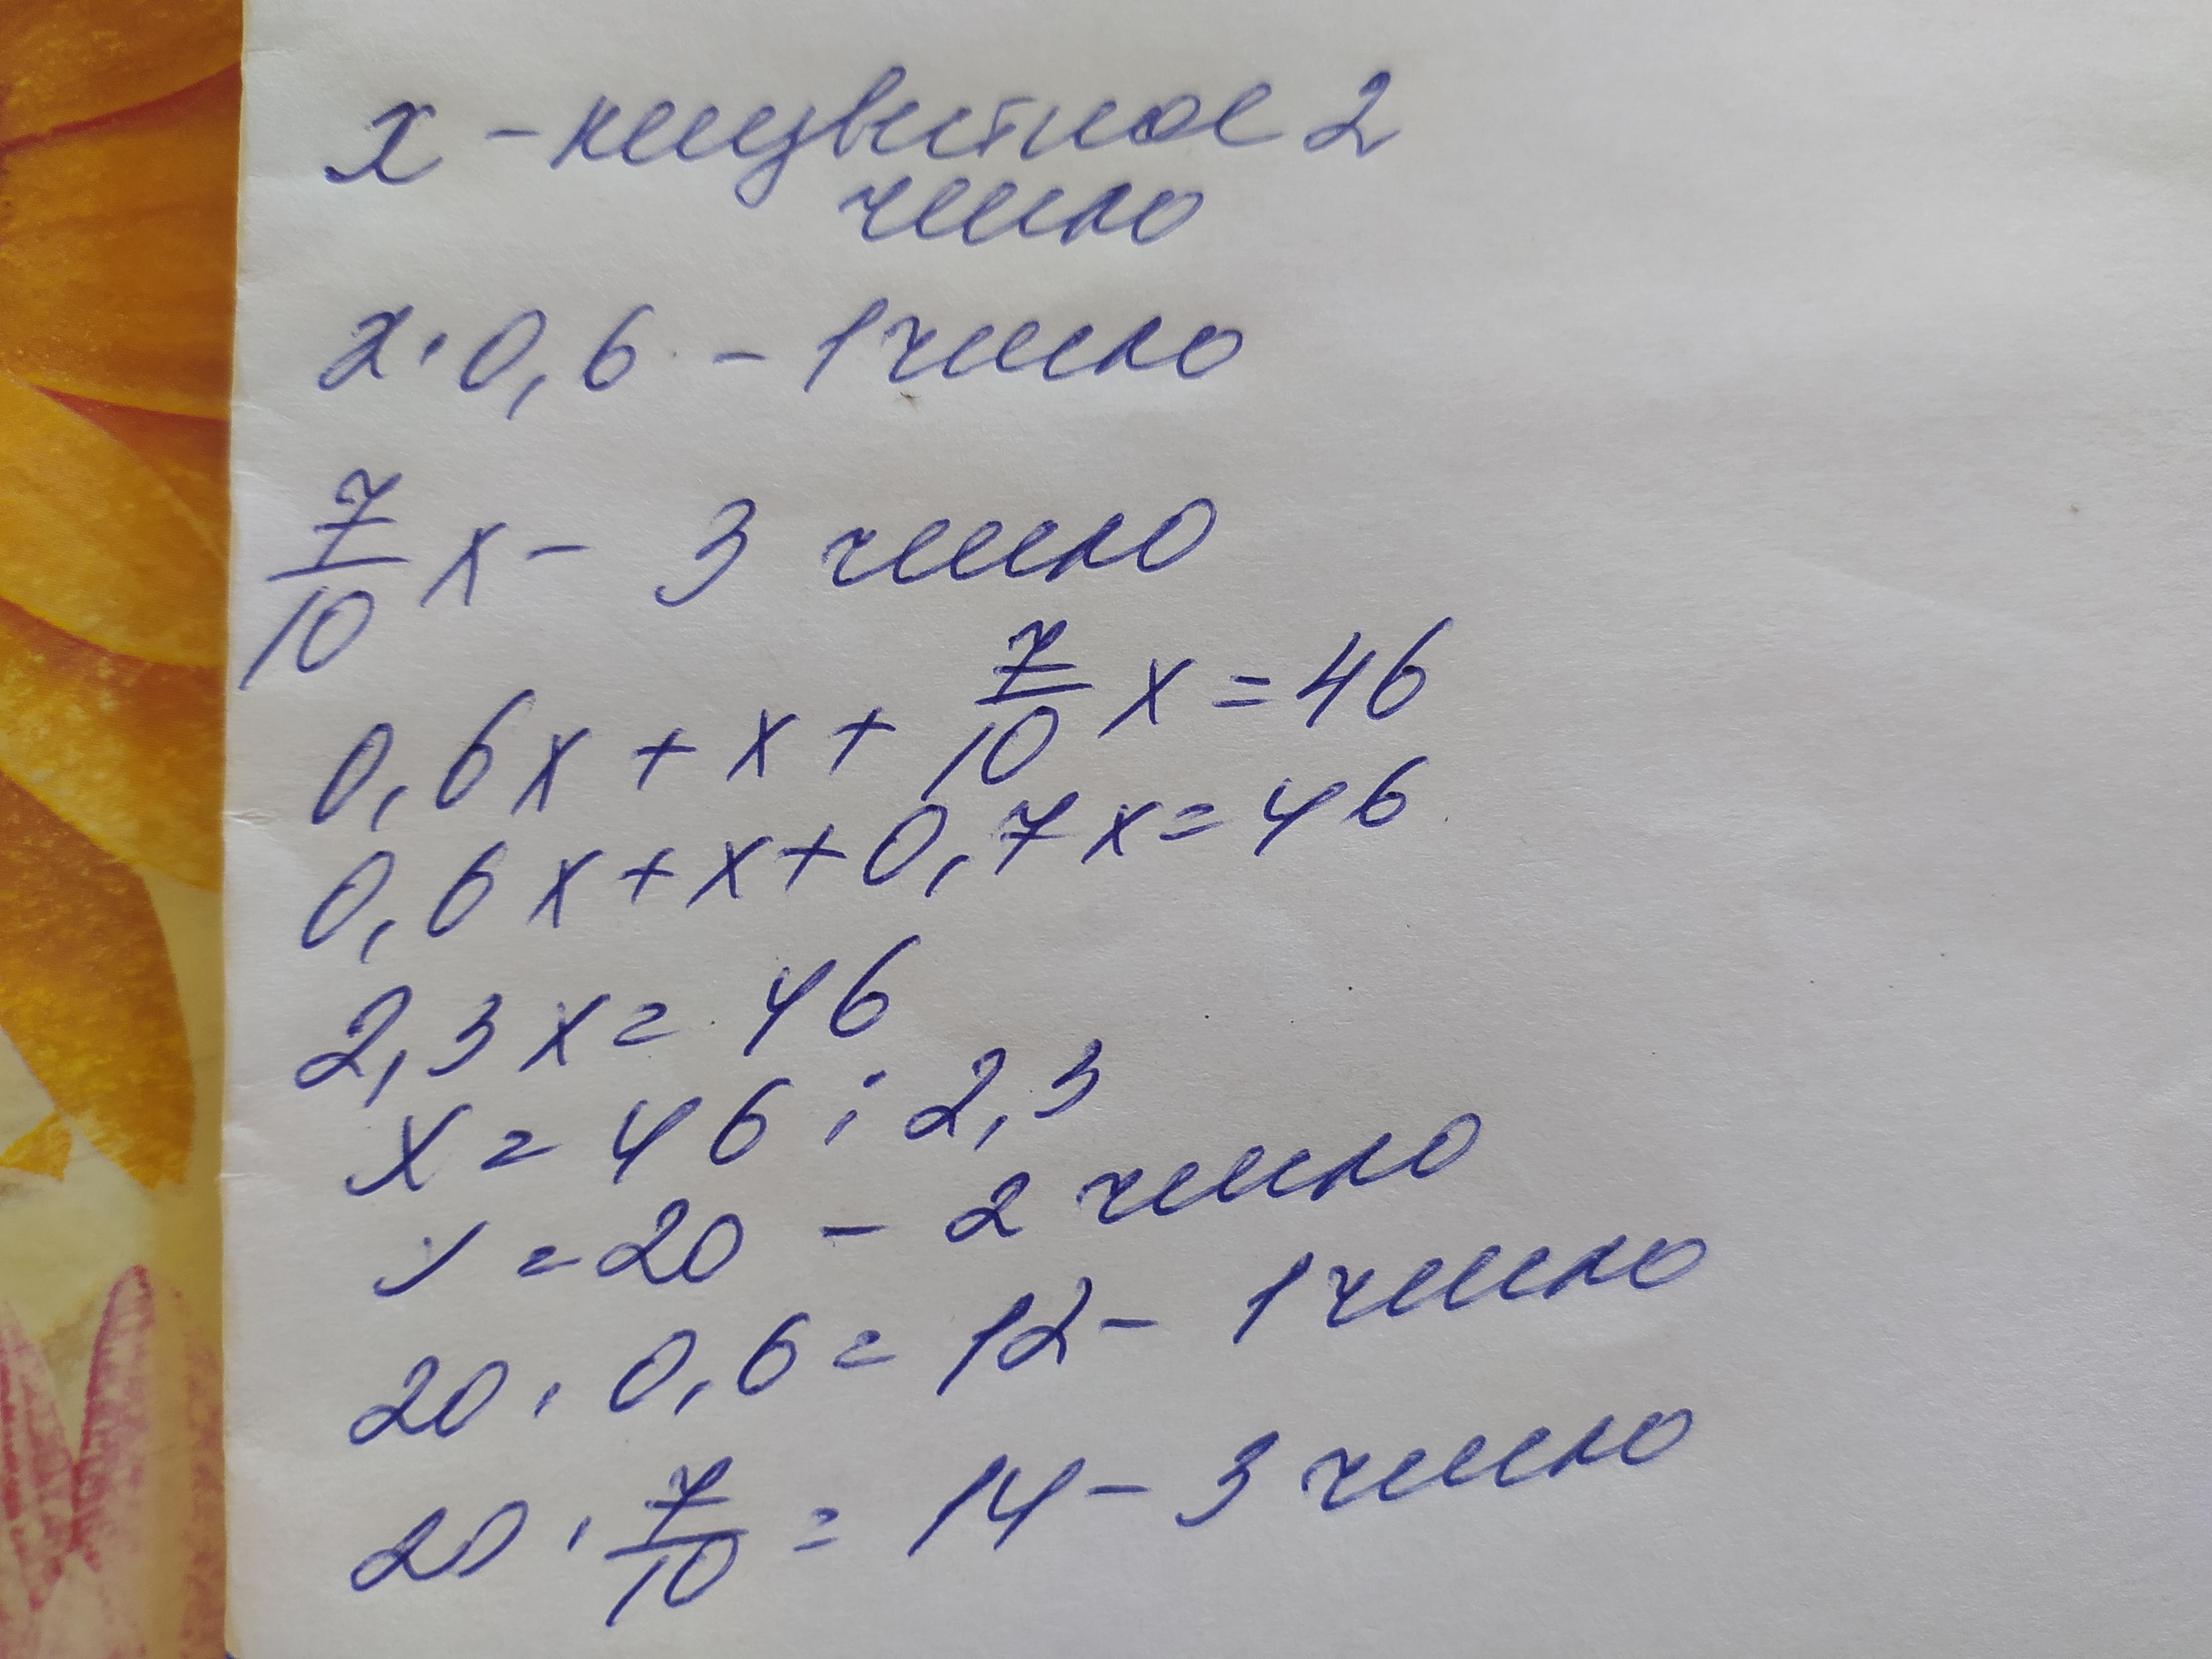 x - неизвестное 2
число
x · 0,6 - 1 число
7/10 x - 3 число
0,6x + x + 7/10 x = 46
0,6x + x + 0,7x = 46
2,3x = 46
x = 46 : 2,3
x = 20 - 2 число
20 · 0,6 = 12 - 1 число
20 · 7/10 = 14 - 3 число